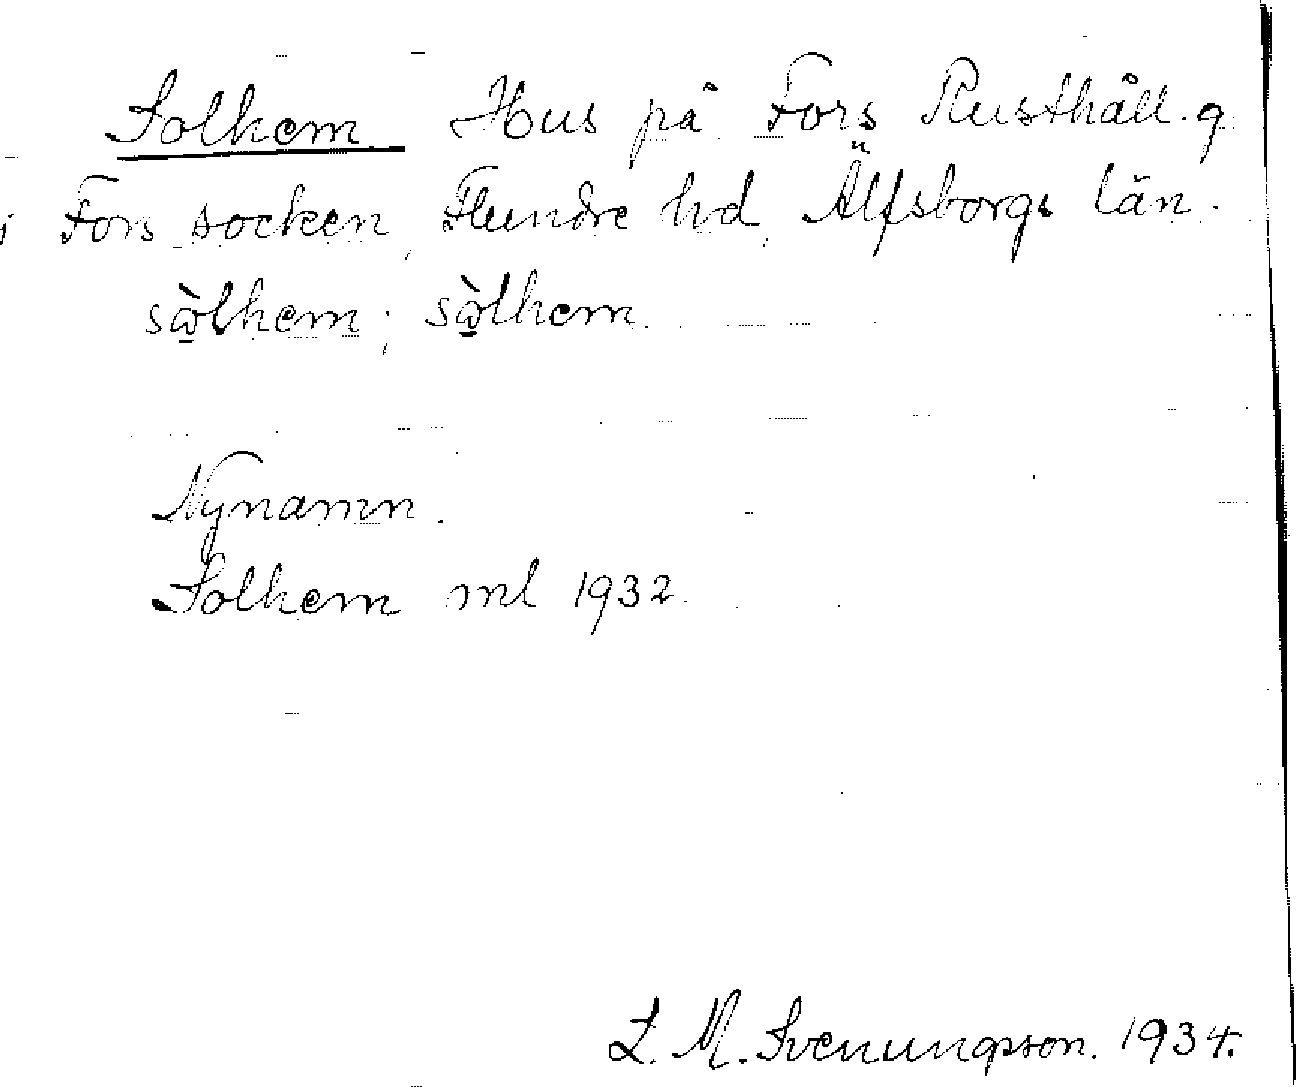 Solhem Hus på Fors Rusthåll. g
i Fors socken, Flundre hd, Älfsborgs län.
sὼlhem; sὼlhem.
Nynamn.
Solhem ml 1932.
L. M. Svenungsson. 1934.